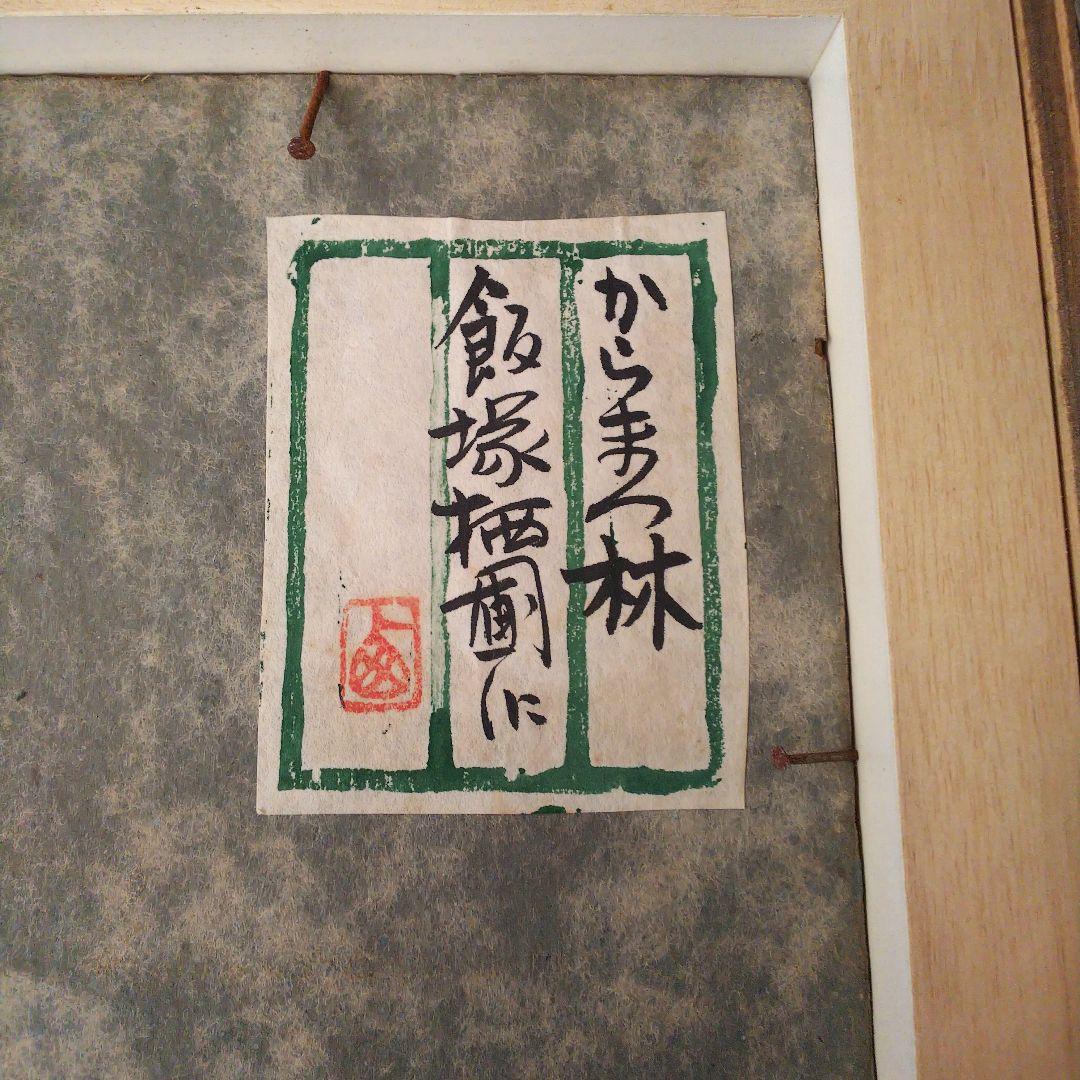 からまつ林
飯塚栖圃に